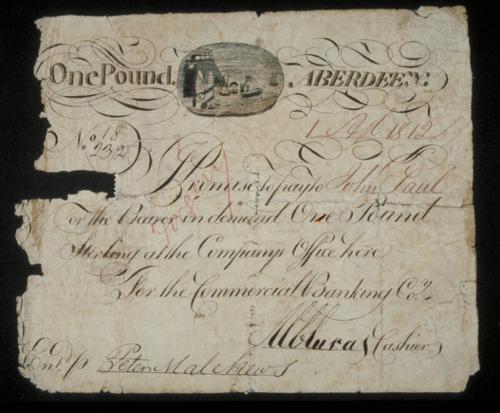 One Pound. ABERDEEN:
No. 18/232 1 1812
Promise to pay to John Paul
or the Bearer in demand One Pound
Sterling at the Company's Office here
For the Commercial Banking Coy.
Cashier
Entd. p Peter Mathews